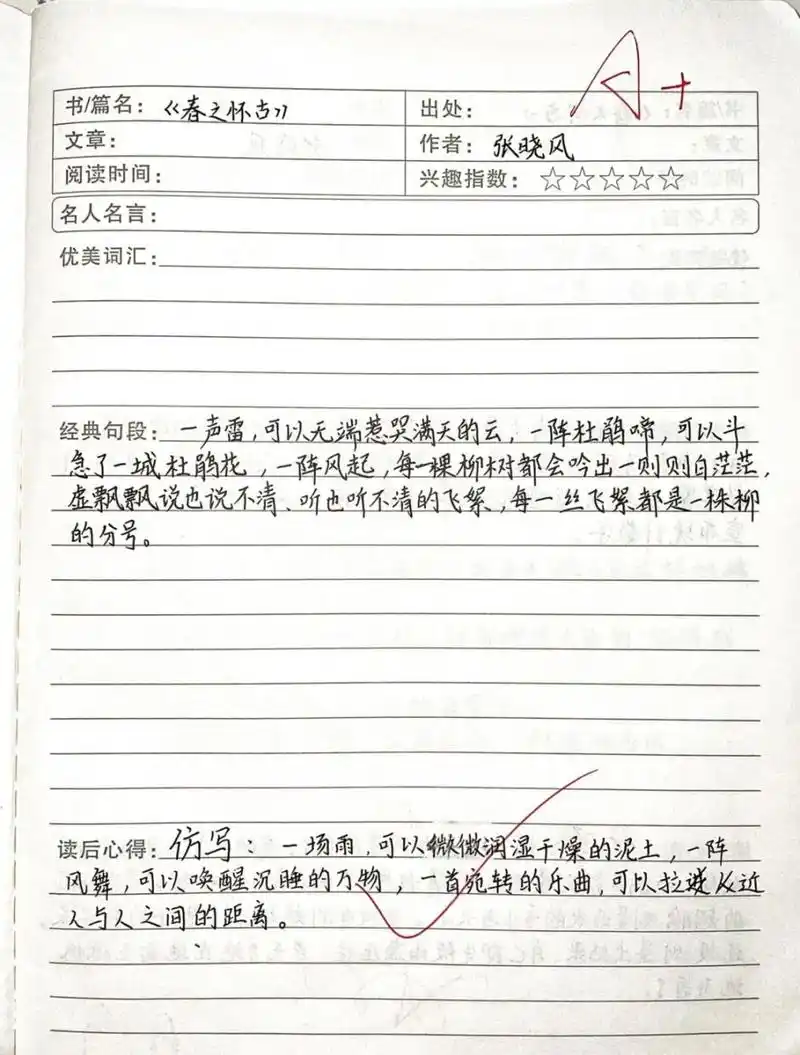 A+
书/篇名：《春之怀古》
出处：
文章：
作者：张晓风
阅读时间：
兴趣指数：☆☆☆☆☆
名人名言：
优美词汇：
经典句段：一声雷，可以无端惹哭满天的云，一阵杜鹃啼，可以斗
急了一城杜鹃花，一阵风起，每一棵柳树都会吟出一则则白茫茫，
虚飘飘说也说不清、听也听不清的飞絮，每一丝飞絮都是一株柳
的分号。
读后心得：仿写：一场雨，可以微微润湿干燥的泥土，一阵
风舞，可以唤醒沉睡的万物，一首宛转的乐曲，可以拉近
人与人之间的距离。